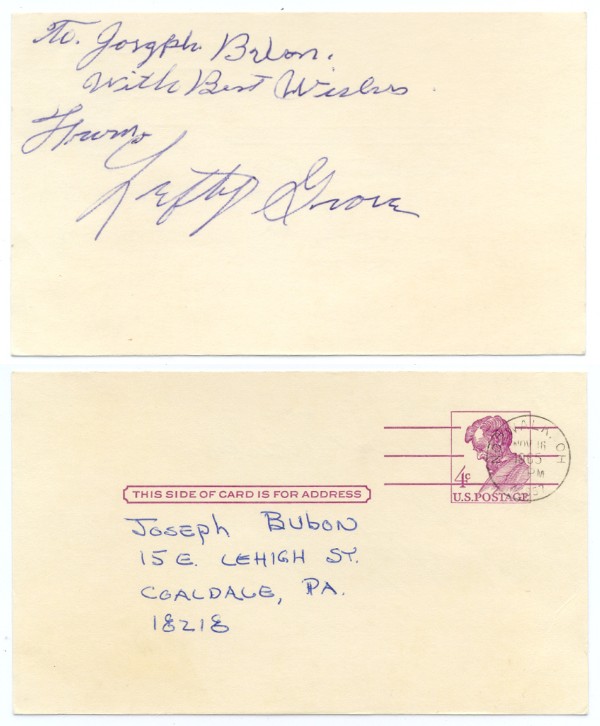 To. Joseph Bubon.
With Best Wishes
From
Lefty Grove
NORWALK, OH
NOV 16
1965
PM
4¢
U.S. POSTAGE
THIS SIDE OF CARD IS FOR ADDRESS
JOSEPH BUBON
15 E. LEHIGH ST.
COALDALE, PA.
18218